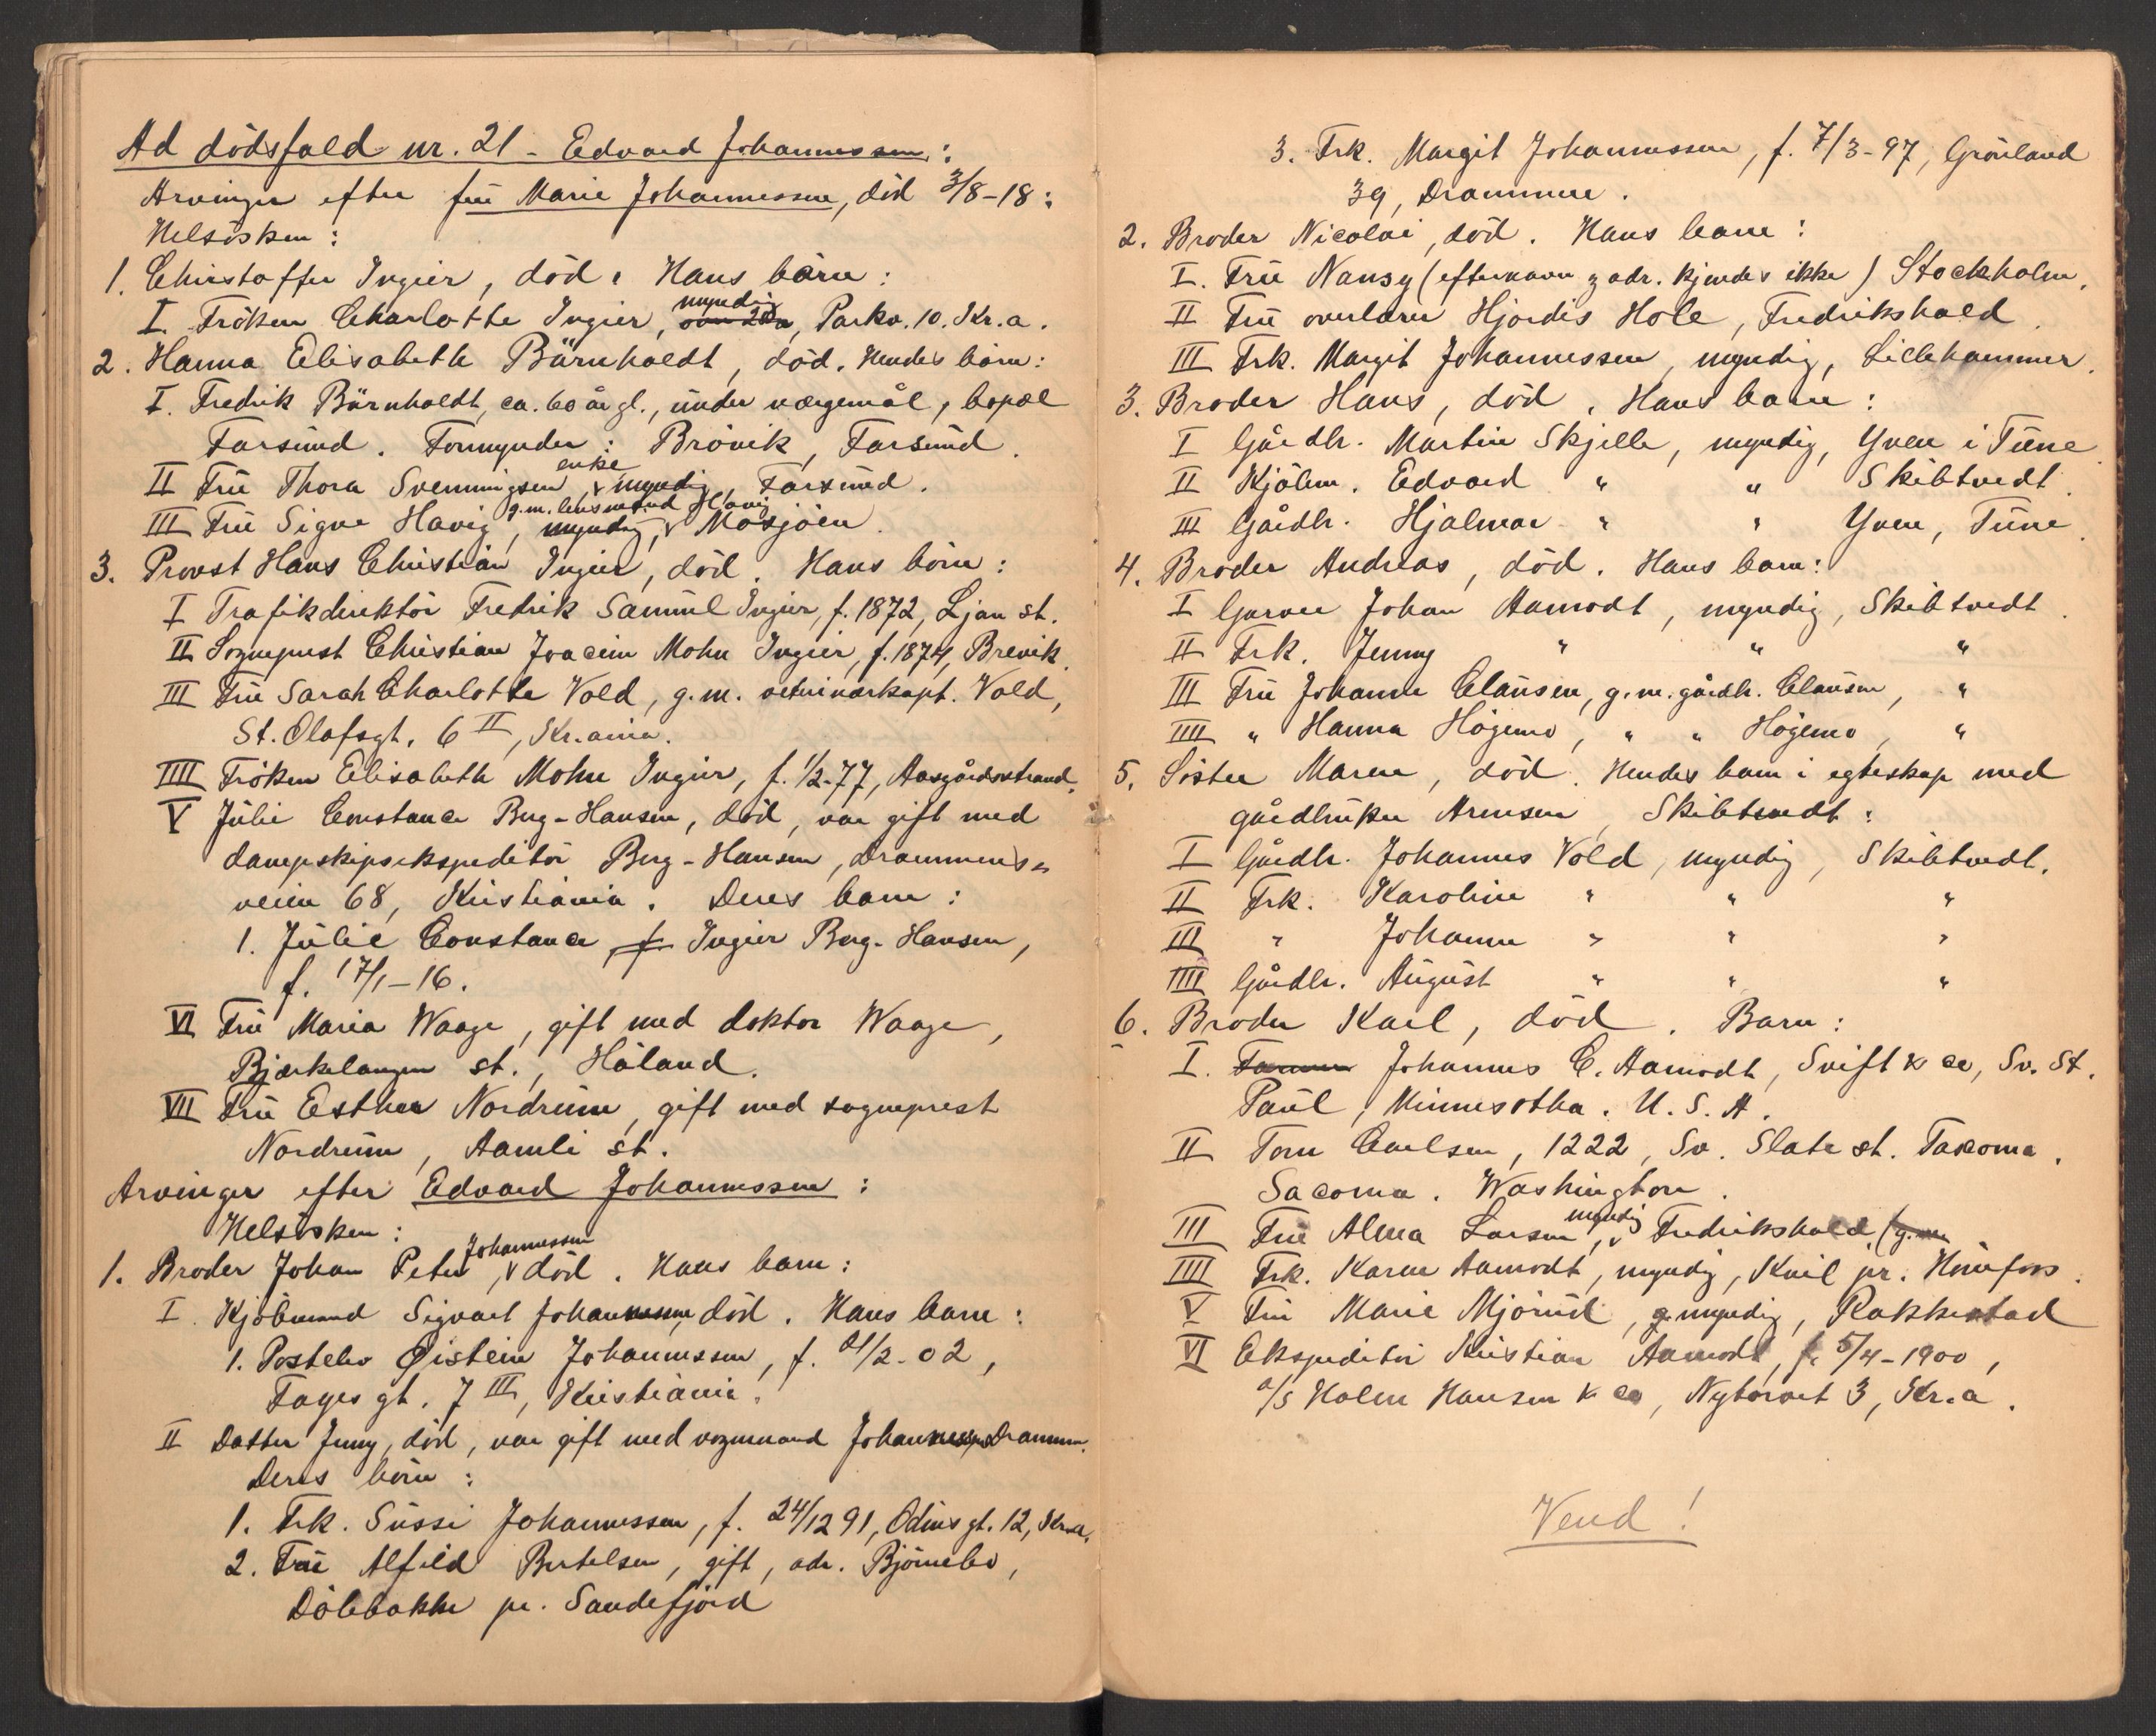 Ad dödsfald nr. 21 - Edvard Johannessen:
Arvinger efter frü Marie Johannessen, död 3/8-18:
Helsösken:
1. Christoffer Ingier, död. Hans börn:
I. Fröken Charlotte Ingier, myndig, Parkv. 10. Kr.a.
2. Hanna Elisabeth Bärnholdt, död. Hendes börn:
I. Fredrik Bärnholdt, ca. 60 år gl., ünder værgemål, bopæl
Farsünd. Formynder: Brövik, Farsünd.
II Frü Thora Svenningsen, enke, myndig, Farsünd.
III Frü Signe Havig, g.m. lensmand Havig, Mosjöen.
3. Provst Hans Christian Ingier, död. Hans börn:
I Trafikdirektör Fredrik Samüel Ingier, f. 1872, Ljan st.
II Sogneprest Christian Joacim Mohn Ingier, f. 1874, Brevik.
III Frü Sarah Charlotte Vold, g.m. veterinærkapt. Vold,
St. Olafsgt. 6 II, Kr.ania.
IIII Fröken Elisabeth Mohn Ingier, f. 1/2-77, Aasgårdstrand.
V Jülie Constance Berg-Hansen, död, var gift med
dampskipsekspeditör Berg-Hansen, Drammens-
veien 68, Kristiania. Deres barn:
1. Jülie Constance Ingier Berg-Hansen,
f. 17/1-16.
VI Frü Maria Waage, gift med doktor Waage,
Bjørkelangen st., Höland.
VII Frü Esther Nordrüm, gift med sogneprest
Nordrüm, Aamli st.
Arvinger efter Edvard Johannessen:
Helsösken:
1. Broder Johan Peter Johannessen, död. Hans barn:
I. Kjöbmand Sigvart Johannessen, död. Hans barn:
1. Postelev Øistein Johannessen, f. 21/2-02,
Fayes gt. 7 III, Kristiania.
II Datter Jenny, död, var gift med vognmand Johannessen, Drammen.
Deres börn:
1. Frk. Süssi Johannessen, f. 24/12 91, Odins gt. 12, Kr.a.
2. Frü Alfild Bertelsen, gift, adr. Björnebo,
Dölebakke pr. Sandefjord
3. Frk. Margit Johannessen, f. 7/3-97, Grönland
39, Drammen.
2. Broder Nicolai, död. Hans barn:
I. Frü Nansy (efternavn & adr. kjendes ikke) Stockholm.
II Frü overlærer Hjördis Hole, Fredrikshald.
III Frk. Margit Johannessen, myndig, Lillehammer.
3. Broder Hans, död. Hans barn:
I Gårdbr. Martin Skjelle, myndig, Yven i Tüne.
II Kjöbm. Edvard " " Skibtvedt.
III Gårdbr. Hjalmar " " Yven, Tüne.
4. Broder Andreas, död. Hans barn:
I Garver Johan Aamodt, myndig, Skibtvedt.
II Frk. Jenny " " "
III Frü Johanne Claüsen, g.m. gårdb. Claüsen, "
IIII " Hanna Högemo, " " Högemo, "
5. Söster Maren, död. Hendes barn i egteskap med
gårdbrüker Arnesen, Skibtvedt:
I Gårdb. Johannes Vold, myndig, Skibtvedt.
II Frk. Karoline " " "
III " Johanne " " "
IIII Gårdb. Aügüst " " "
6. Broder Karl, död. Barn:
I. Johannes C. Aamodt, Svift & co, So. St.
Paül, Minnesotha. U.S.A.
II Tom Carlsen, 1222, So. State st. Takoma.
Sacoma. Washington.
III Frü Alma Larsen, myndig, Fredrikshald
IIII Frk. Karen Aamodt, myndig, Kvil pr. Hönefoss.
V Frü Marie Mjörüd, myndig, Rakkestad
VI Ekspeditör Kristian Aamodt, f. 5/4-1900,
a/s Holm Hansen & co, Nytorvet 3, Kr.a.
Vend!